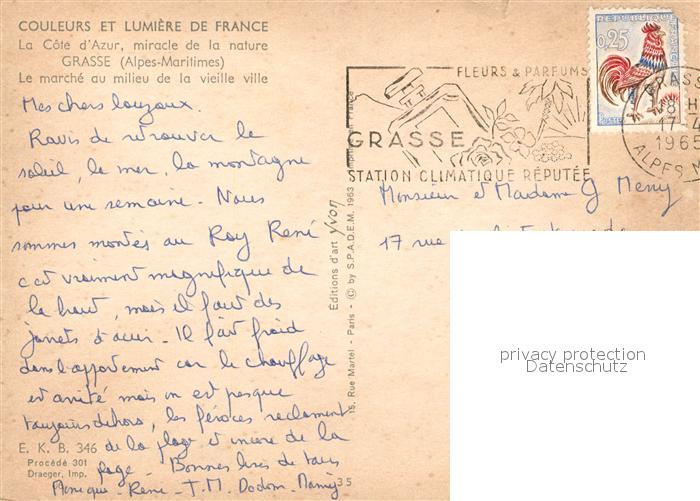 COULEURS ET LUMIÈRE DE FRANCE
La Côte d'Azur, miracle de la nature
GRASSE (Alpes-Maritimes)
Le marché au milieu de la vieille ville
Mes chers
Ravis de retrouver le
soleil, la mer, la montagne
pour une semaine. Nous
sommes montés au Roy René
c'est vraiment magnifique de
là haut, mais il faut des
jarrets d'acier. Il fait froid
dans l'appartement car le chauffage
est arrêté mais on est presque
toujours dehors, les féroces réclament
de la plage et encore de la
plage. Bonnes bises de tous
Monique. René. T.M. Dodom.
E. K. B. 346
Procédé 301
Draeger, Imp.
Editions d'art yvon
15, Rue Martel - Paris - © by S.P.A.D.E.M. 1963
France
35
FLEURS & PARFUMS
GRASSE
STATION CLIMATIQUE RÉPUTÉE
0,25
POSTES
GRASSE
8 H
17-4
1965
ALPES M
Monsieur et Madame J Meny
17 rue
privacy protection
Datenschutz